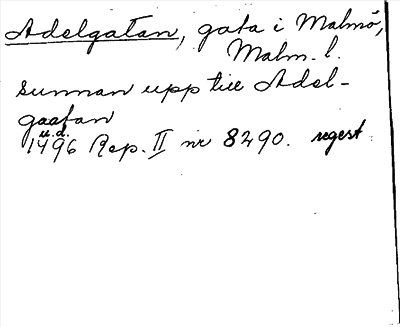 Adelgatan, gata i Malmö,
Malm. l.
sunnan upp till Adel-
gaatan
u.d.
1496 Rep. II nr 8290. regest